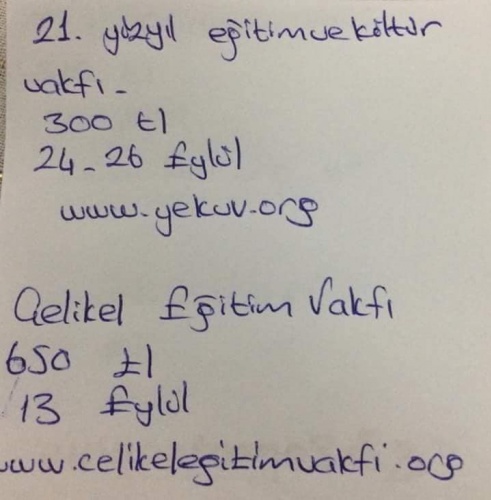 21. yüzyıl eğitim ve kültür
vakfı-
300 tl
24-26 Eylül
www.yekuv.org
Çelikel Eğitim Vakfı
650 tl
13 Eylül
www.celikelegitimvakfi.org